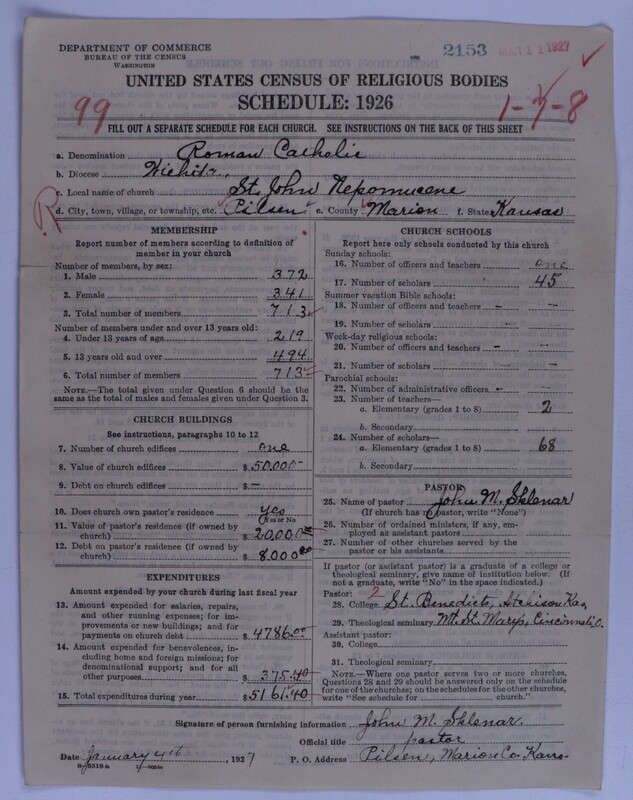 DEPARTMENT OF COMMERCE
BUREAU OF THE CENSUS
WASHINGTON
2153
1927
UNITED STATES CENSUS OF RELIGIOUS BODIES
SCHEDULE: 1926
99
1-7-8
FILL OUT A SEPARATE SCHEDULE FOR EACH CHURCH. SEE INSTRUCTIONS ON THE BACK OF THIS SHEET
a. Denomination Roman Catholic
b. Diocese Wichita,
c. Local name of church St. John Nepomucene
R
d. City, town, village, or township, etc. Pilsen e. County Marion f. State Kansas
MEMBERSHIP
Report number of members according to definition of
member in your church
Number of members, by sex:
1. Male 372
2. Female 341
3. Total number of members 713
Number of members under and over 13 years old:
4. Under 13 years of age 219
5. 13 years old and over 494
6. Total number of members 713
NOTE.—The total given under Question 6 should be the
same as the total of males and females given under Question 3.
CHURCH BUILDINGS
See instructions, paragraphs 10 to 12
7. Number of church edifices one
8. Value of church edifices $ 50,000-
9. Debt on church edifices $ —
10. Does church own pastor's residence yes
(Yes or No
11. Value of pastor's residence (if owned by
church) $ 20,000.00
12. Debt on pastor's residence (if owned by
church) $ 8,000.00
EXPENDITURES
Amount expended by your church during last fiscal year
13. Amount expended for salaries, repairs,
and other running expenses; for im-
provements or new buildings; and for
payments on church debt $ 4786.00
14. Amount expended for benevolences, in-
cluding home and foreign missions; for
denominational support; and for all
other purposes $ 375.40
15. Total expenditures during year $ 5161.40
CHURCH SCHOOLS
Report here only schools conducted by this church
Sunday schools:
16. Number of officers and teachers one
17. Number of scholars 45
Summer vacation Bible schools:
18. Number of officers and teachers —
19. Number of scholars —
Week-day religious schools:
20. Number of officers and teachers —
21. Number of scholars —
Parochial schools:
22. Number of administrative officers —
23. Number of teachers—
a. Elementary (grades 1 to 8) 2
b. Secondary
24. Number of scholars—
a. Elementary (grades 1 to 8) 68
b. Secondary
PASTOR
25. Name of pastor John M. Sklenar
(If church has no pastor, write "None")
26. Number of ordained ministers, if any, em-
ployed as assistant pastors
27. Number of other churches served by the
pastor or his assistants
If pastor (or assistant pastor) is a graduate of a college or
theological seminary, give name of institution below. (If
not a graduate, write "No" in the space indicated.)
Pastor: 2
28. College St. Benedicts, Atchison Kas,
29. Theological seminary Mt. St. Marys, Cincinnati O.
Assistant pastor:
30. College
31. Theological seminary
NOTE.—Where one pastor serves two or more churches,
Questions 28 and 29 should be answered only on the schedule
for one of the churches; on the schedules for the other churches,
write "See schedule for church."
Signature of person furnishing information John M. Sklenar.
Official title pastor
Date January 4th, 1927 P. O. Address Pilsen, Marion Co. Kans.